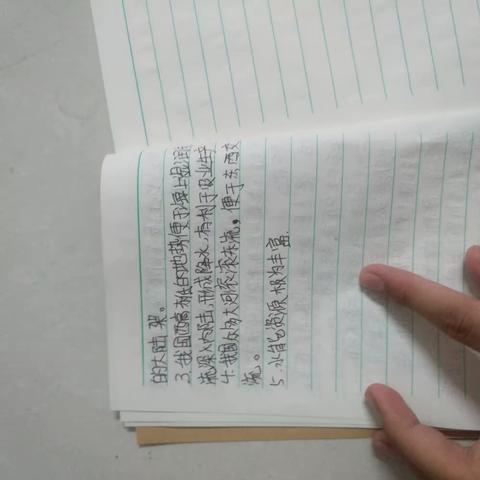 的大陆架。
3.我国西高东低的地势便于海上湿润
流深入内陆,形成降水,有利于农业生产
4.我国众多大河滚滚东流。便于东西交
流。
5.水能资源极为丰富.